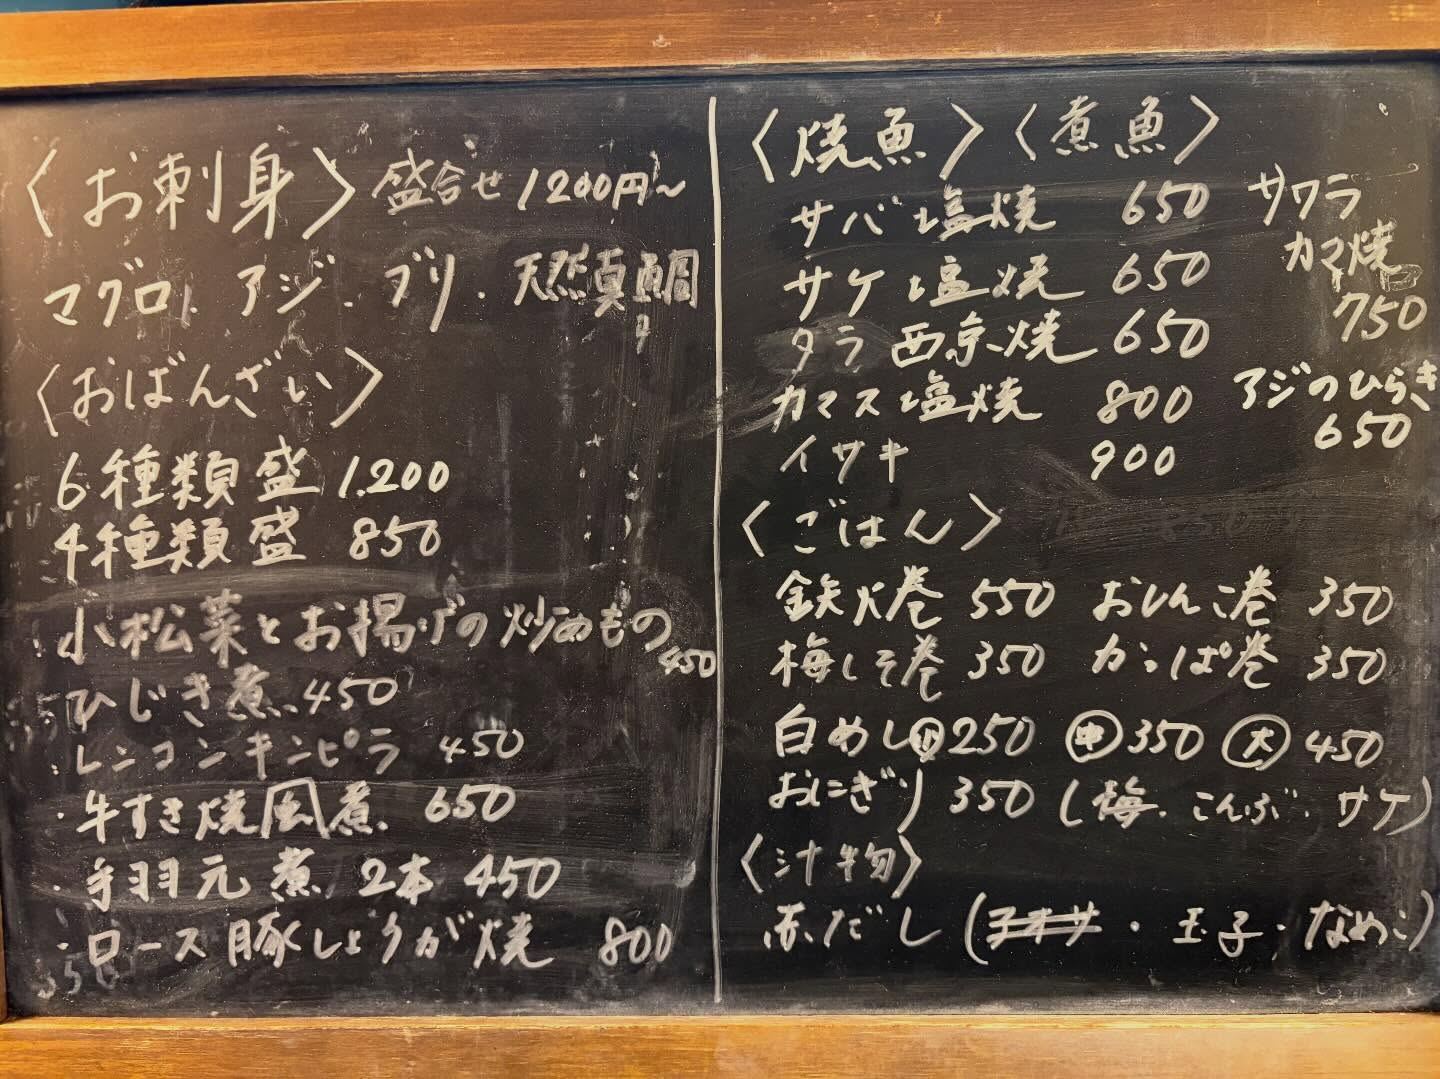 〈お刺身〉盛合せ 1200円〜
マグロ. アジ. ブリ. 天然真鯛
〈おばんざい〉
6種類盛 1.200
4種類盛 850
・小松菜とお揚げの炒めもの 450
・ひじき煮 450
・レンコンキンピラ 450
・牛すき焼風煮 650
・手羽元煮 2本 450
・ロース豚しょうが焼 800
〈焼魚〉〈煮魚〉
サバ塩焼 650
サケ塩焼 650
タラ西京焼 650
カマス塩焼 800
イサキ 900
サワラ
カマ焼
750
アジのひらき
650
〈ごはん〉
鉄火巻 550 おしんこ巻 350
梅しそ巻 350 かっぱ巻 350
白めし小250 中350 大450
おにぎり 350 (梅. こんぶ. サケ)
〈汁物〉
赤だし (アオサ・玉子・なめこ)